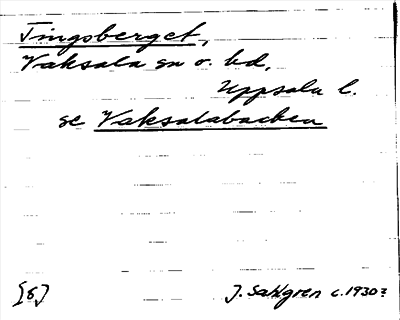 Tingsberget,
Vaksala sn o. hd,
Uppsala l.
se Vaksalabacken
[8]
J. Sahlgren c. 1930?